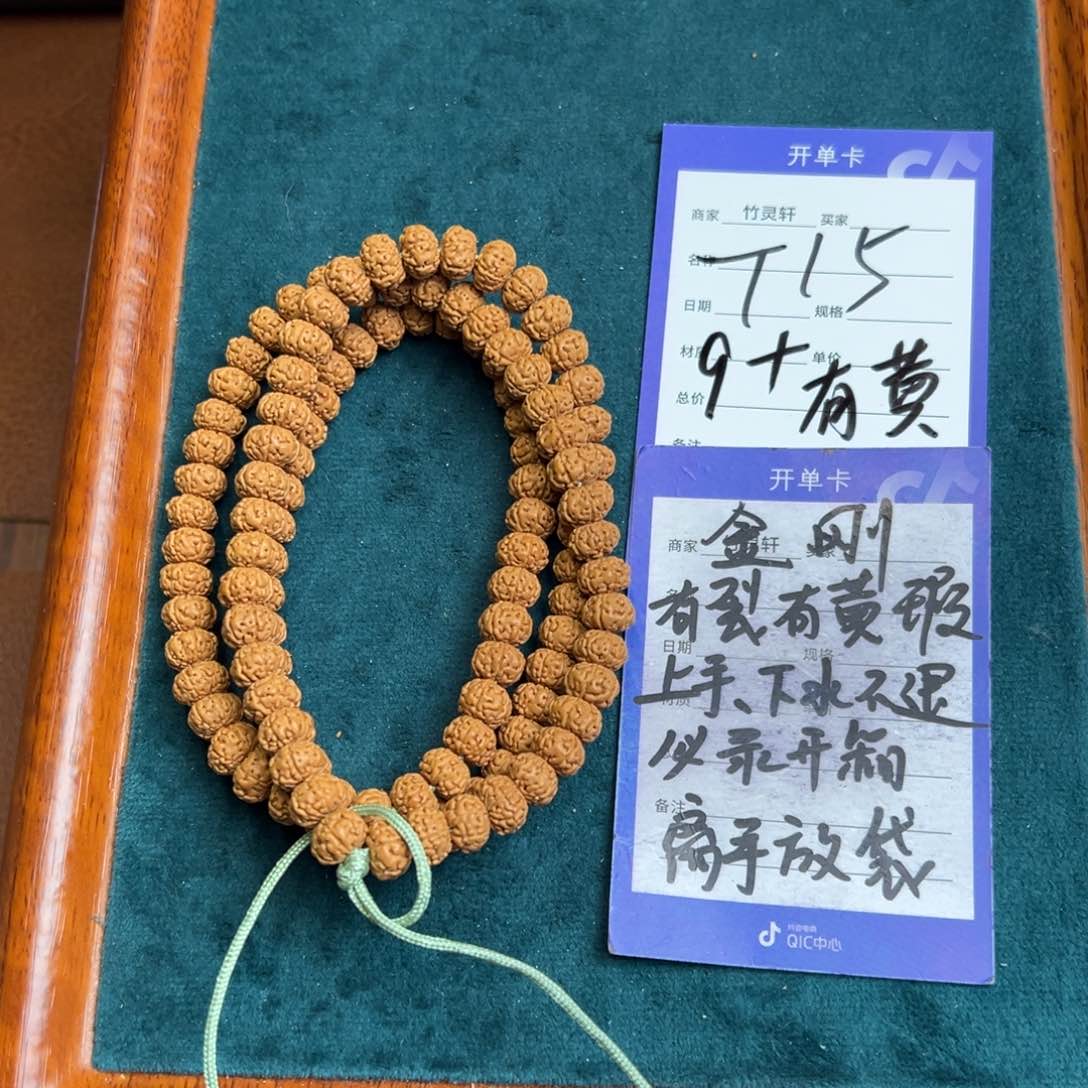 开单卡
商家 竹灵轩 买家
T15
日期 规格
9+有黄
单价
总价
备注
开单卡
金刚
商家 轩
有裂有黄瑕
日期 规格
上手、下水不退
必录开箱
备注
扁平放袋
抖音电商
QIC中心